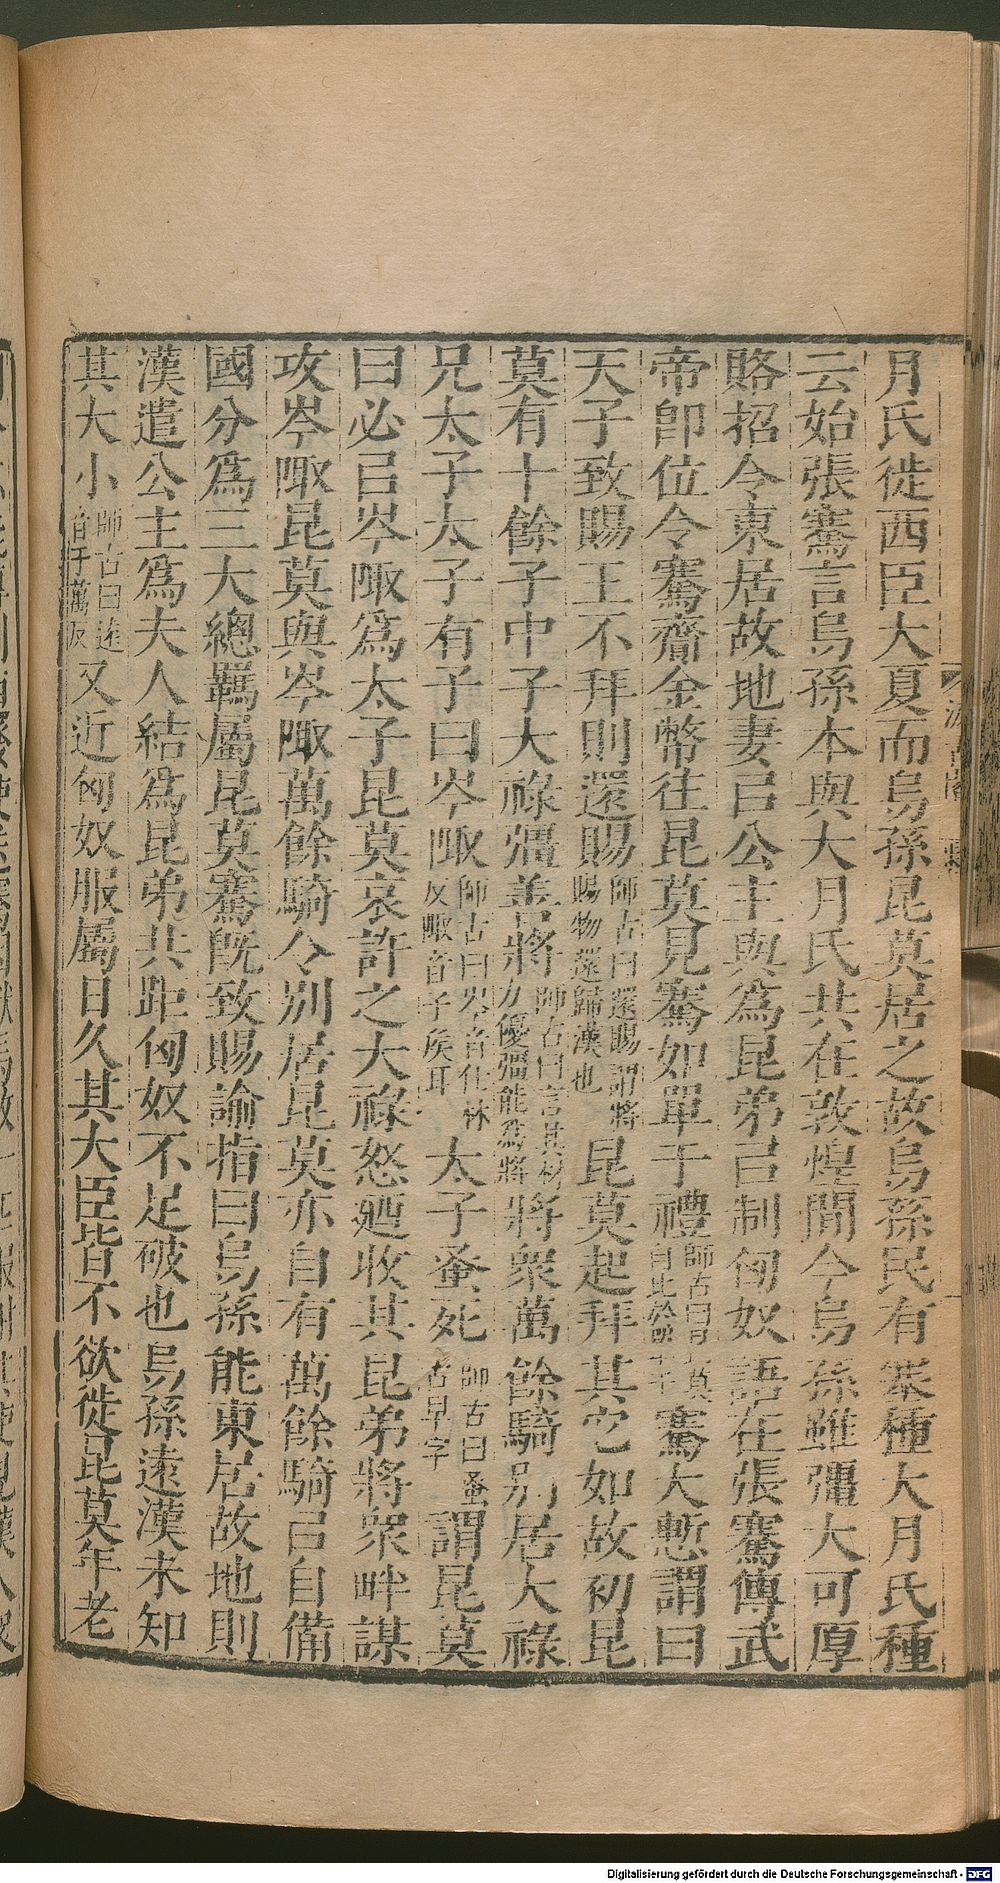 月氏徙西臣大夏而烏孫昆莫居之故烏孫民有塞種大月氏種
云始張騫言烏孫本與大月氏共在敦煌間今烏孫雖彊大可厚
賂招令東居故地妻㠯公主與為昆弟㠯制匈奴語在張騫傳武
帝卽位令騫齎金幣往昆莫見騫如單于禮師古曰昆莫自比於單于騫大慙謂曰
天子致賜王不拜則還賜師古曰還賜謂將賜物還歸漢也昆莫起拜其它如故初昆
莫有十餘子中子大祿彊善將師古曰言其材力優彊能為將將衆萬餘騎別居大祿
兄太子太子有子曰岑陬師古曰岑音仕林反陬音子侯耳太子蚤死師古曰蚤古早字謂昆莫
曰必㠯岑陬爲太子昆莫哀許之大祿怒廼收其昆弟將衆畔謀
攻岑陬昆莫與岑陬萬餘騎令別居昆莫亦自有萬餘騎㠯自備
國分爲三大總羈屬昆莫騫旣致賜諭指曰烏孫能東居故地則
漢遣公主爲夫人結爲昆弟共距匈奴不足破也烏孫遠漢未知
其大小師古曰遠音于萬反又近匈奴服屬日久其大臣皆不欲徙昆莫年老
Digitalisierung gefördert durch die Deutsche Forschungsgemeinschaft - DFG